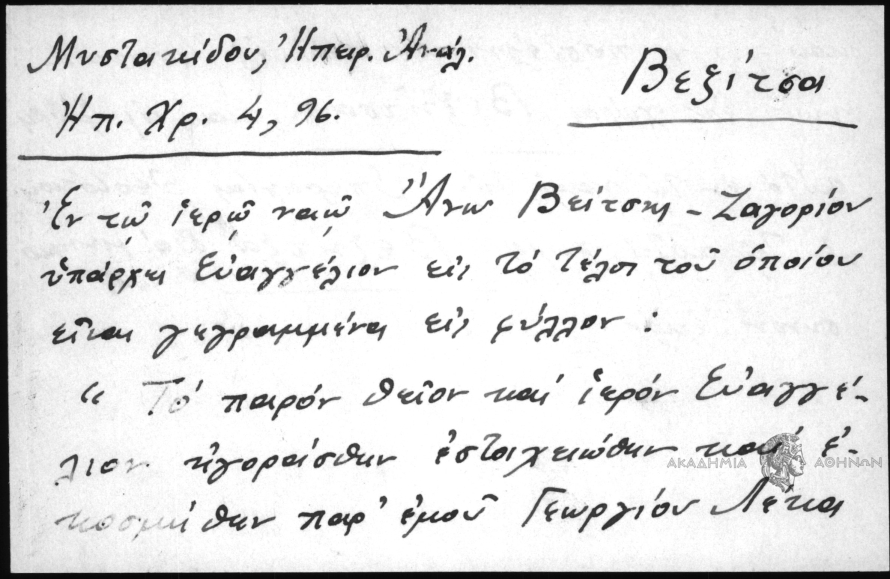 Μυστακίδου, Ἠπειρ. Ἀνάλ.
Ἠπ. Χρ. 4, 96.
Βεξίτσα
Ἐν τῷ ἱερῷ ναῷ Ἄνω Βεΐτσης - Ζαγορίου
ὑπάρχει Εὐαγγέλιον εἰς τό τέλος τοῦ ὁποίου
εἶναι γεγραμμένα εἰς φύλλον :
" Τό παρόν θεῖον καί ἱερόν Εὐαγγέ-
λιον ἠγοράσθην ἐσταχειώθην καί ἐ-
κοσμήθην παρ' ἐμοῦ Γεωργίου Λέκα
ΑΚΑΔΗΜΙΑ ΑΘΗΝΩΝ